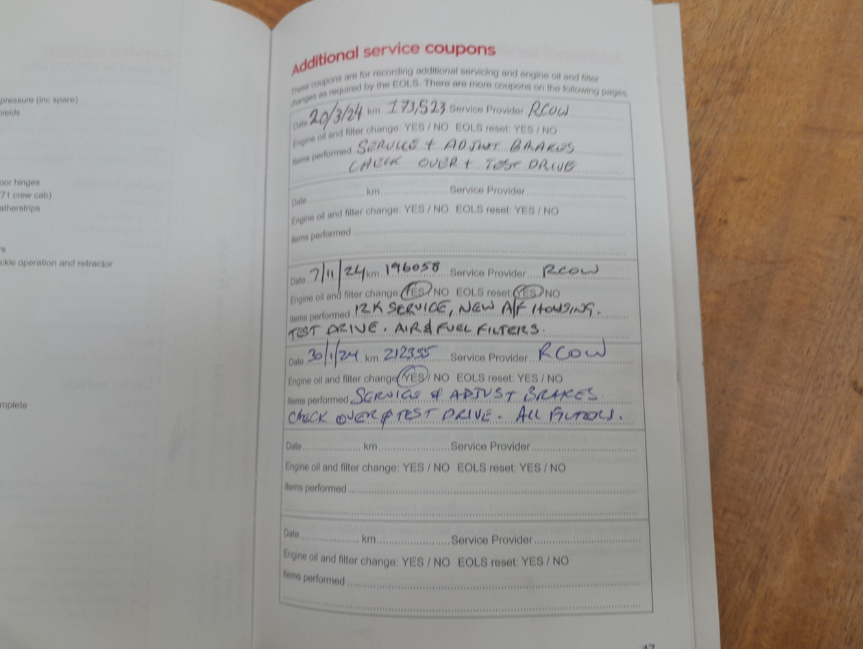 pressure (inc spare)
nields
oor hinges
71 crew cab)
atherstrips
rs
ckle operation and retractor
mplete
Additional service coupons
These coupons are for recording additional servicing and engine oil and filter
changes as required by the EOLS. There are more coupons on the following pages.
Date 20/3/24 km 173,523 Service Provider RCOW
Engine oil and filter change: YES / NO EOLS reset: YES / NO
Items performed SERVICE + ADJUST BRAKES
CHECK OVER + TEST DRIVE
Date km Service Provider
Engine oil and filter change: YES / NO EOLS reset: YES / NO
Items performed
Date 7/11/24 km 196058 Service Provider RCOW
Engine oil and filter change: YES / NO EOLS reset: YES / NO
Items performed 12K SERVICE, NEW A/F HOUSING.
TEST DRIVE. AIR & FUEL FILTERS.
Date 30/1/24 km 212355 Service Provider RCOW
Engine oil and filter change: YES / NO EOLS reset: YES / NO
Items performed SERVICE & ADJUST BRAKES
CHECK OVER & TEST DRIVE. ALL FILTERS.
Date km Service Provider
Engine oil and filter change: YES / NO EOLS reset: YES / NO
Items performed
Date km Service Provider
Engine oil and filter change: YES / NO EOLS reset: YES / NO
Items performed